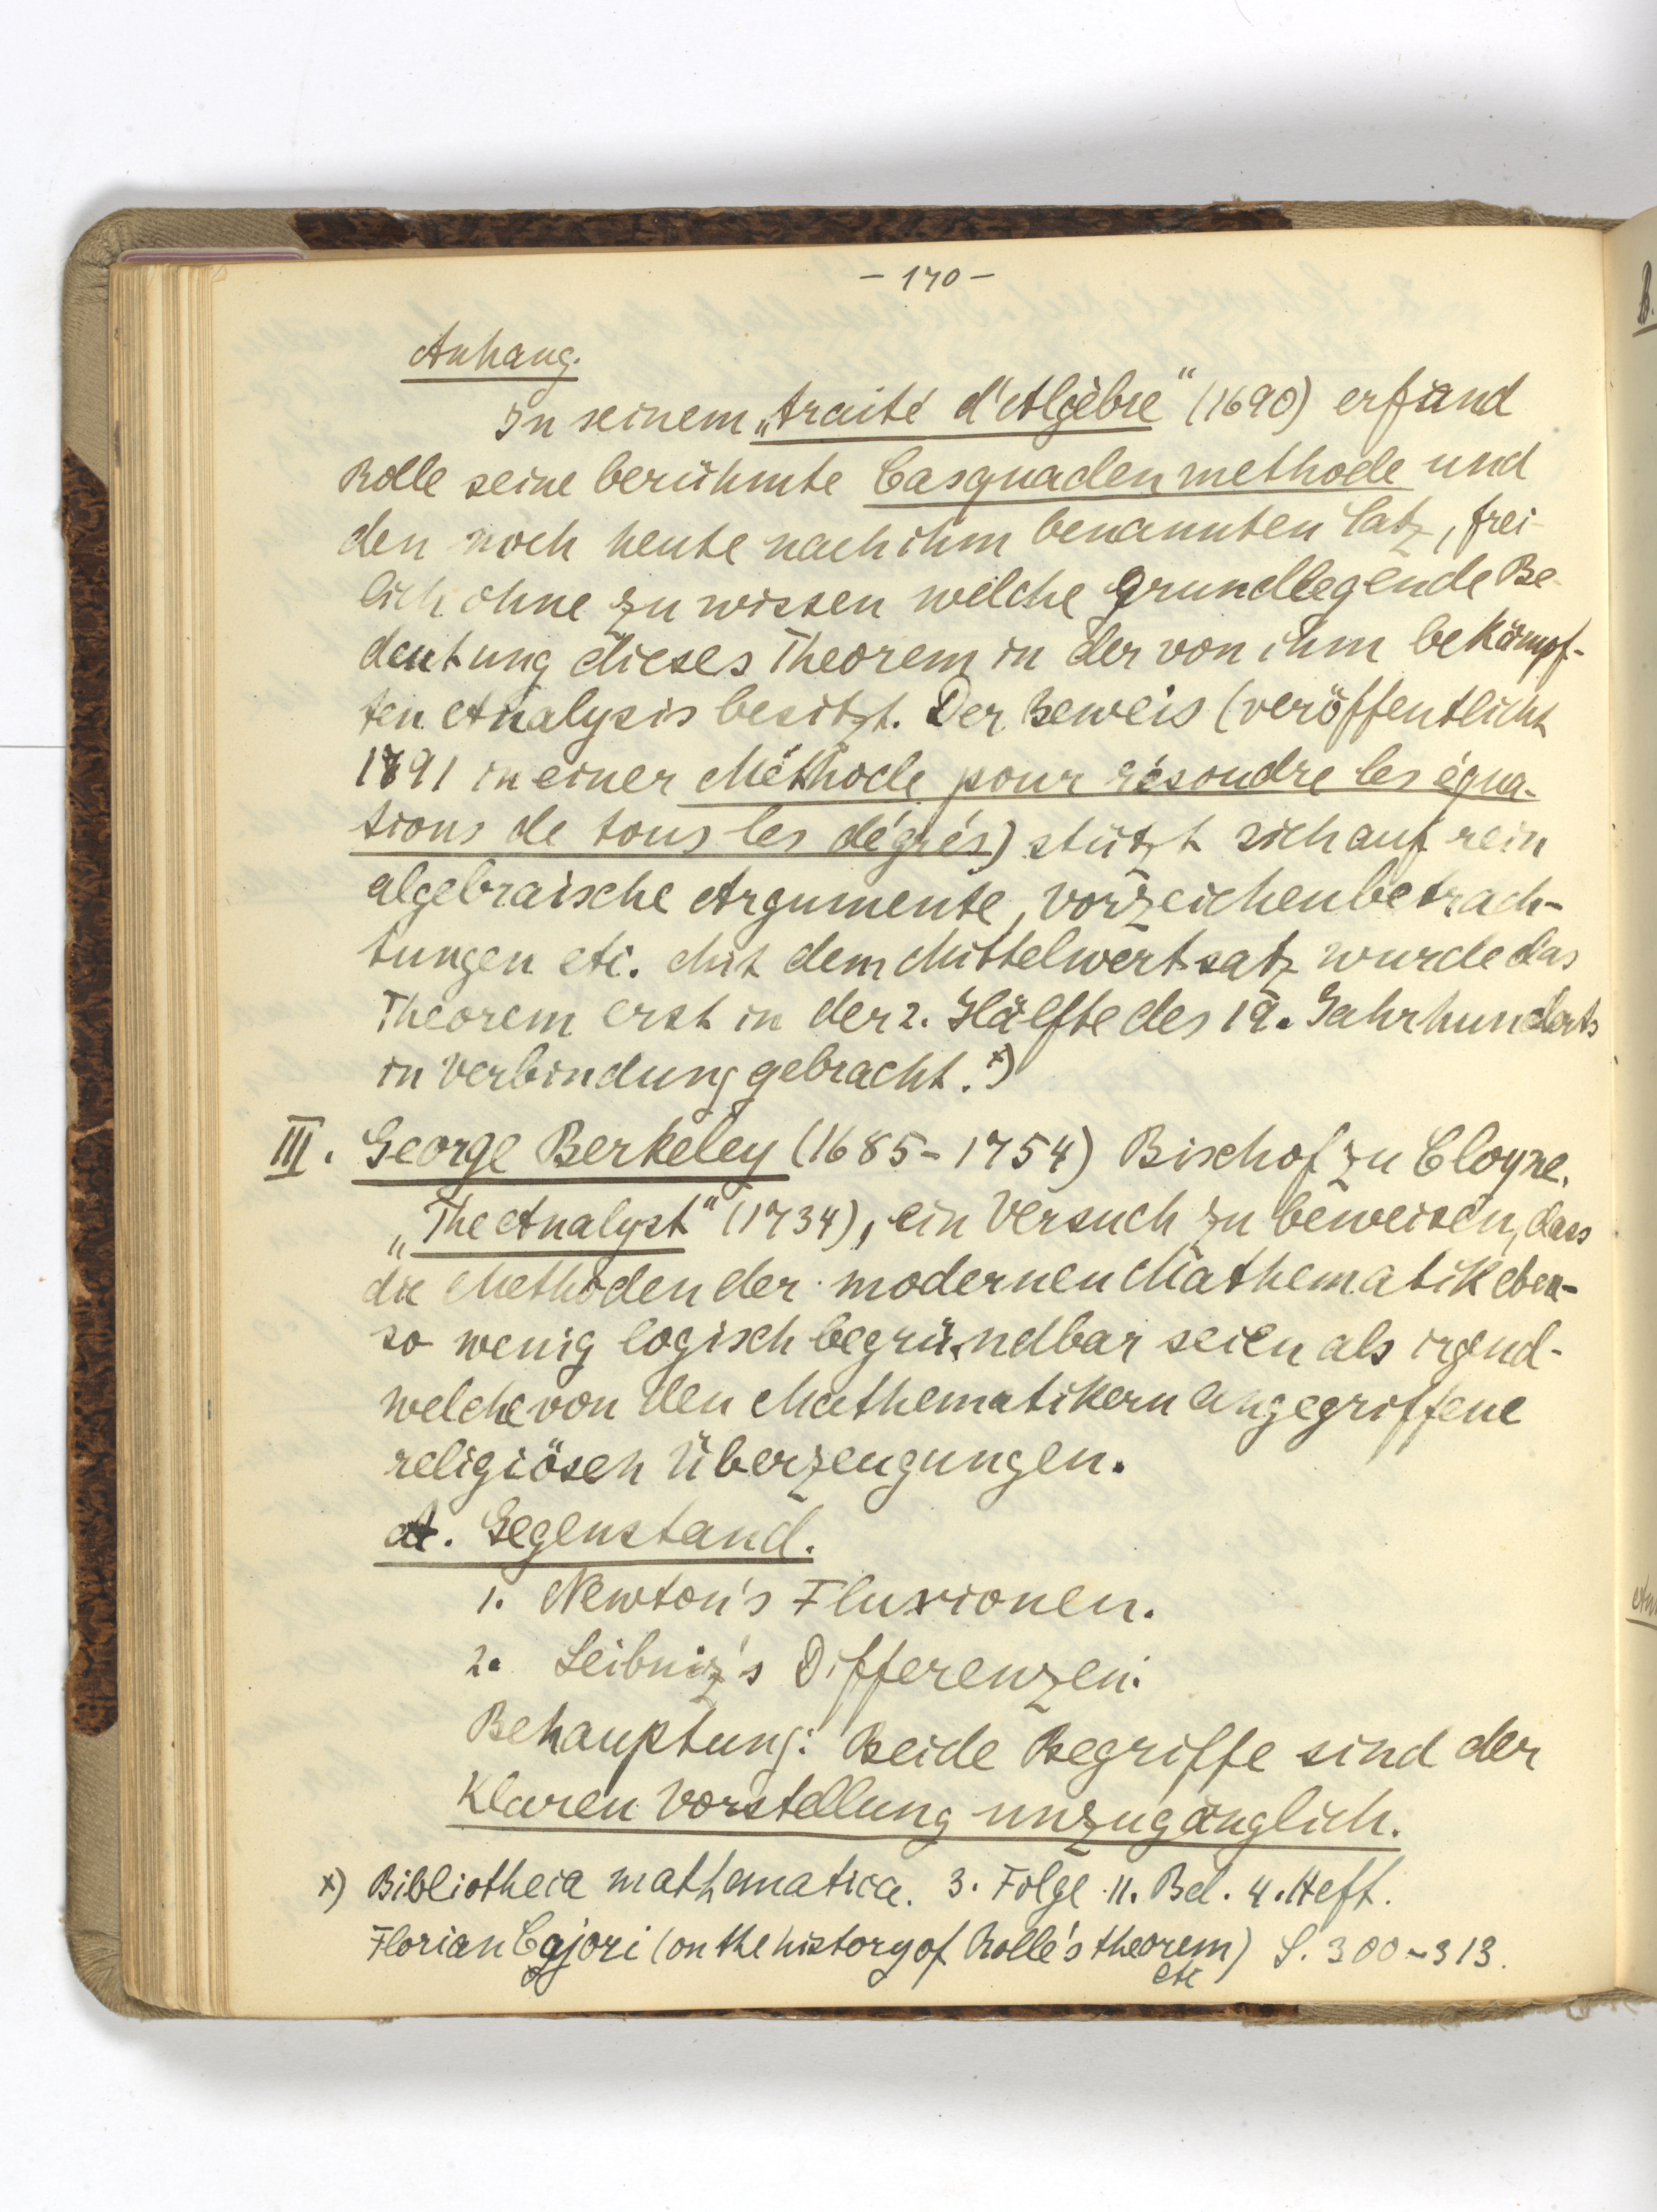 - 170 -
Anhang.
In seinem „traité d'Algèbre“ (1690) erfand
Rolle seine berühmte Casquadenmethode und
den noch heute nach ihm benannten Satz, frei-
lich ohne zu wissen welche grundlegende Be-
deutung dieses Theorem in der von ihm bekämpf-
ten Analysis besitzt. Der Beweis (veröffentlicht
in einer Méthode pour résoudre les équa-
tions de tous les dégrés) stützt sich auf rein
algebraische Argumente, Vorzeichenbetrach-
tungen etc. Mit dem Mittelwertsatz wurde das
Theorem erst in der 2. Hälfte des 19. Jahrhunderts
in Verbindung gebracht. x)
III. George Berkeley (1685-1754) Bischof zu Cloyne.
„The Analyst“ (1734), ein Versuch zu beweisen, dass
die Methoden der modernen Mathematik eben-
so wenig logisch begründbar seien als irgend-
welche von den Mathematikern angegriffene
religiösen Überzeugungen.
A. Gegenstand.
1. Newton's Fluxionen.
2. Leibniz's Differenzen.
Behauptung: Beide Begriffe sind der
klaren Vorstellung unzugänglich.
x) Bibliotheca mathematica. 3. Folge 11. Bd. 4. Heft.
Florian Cajori (on the history of Rolle's theorem) S. 300-313.
etc
B.